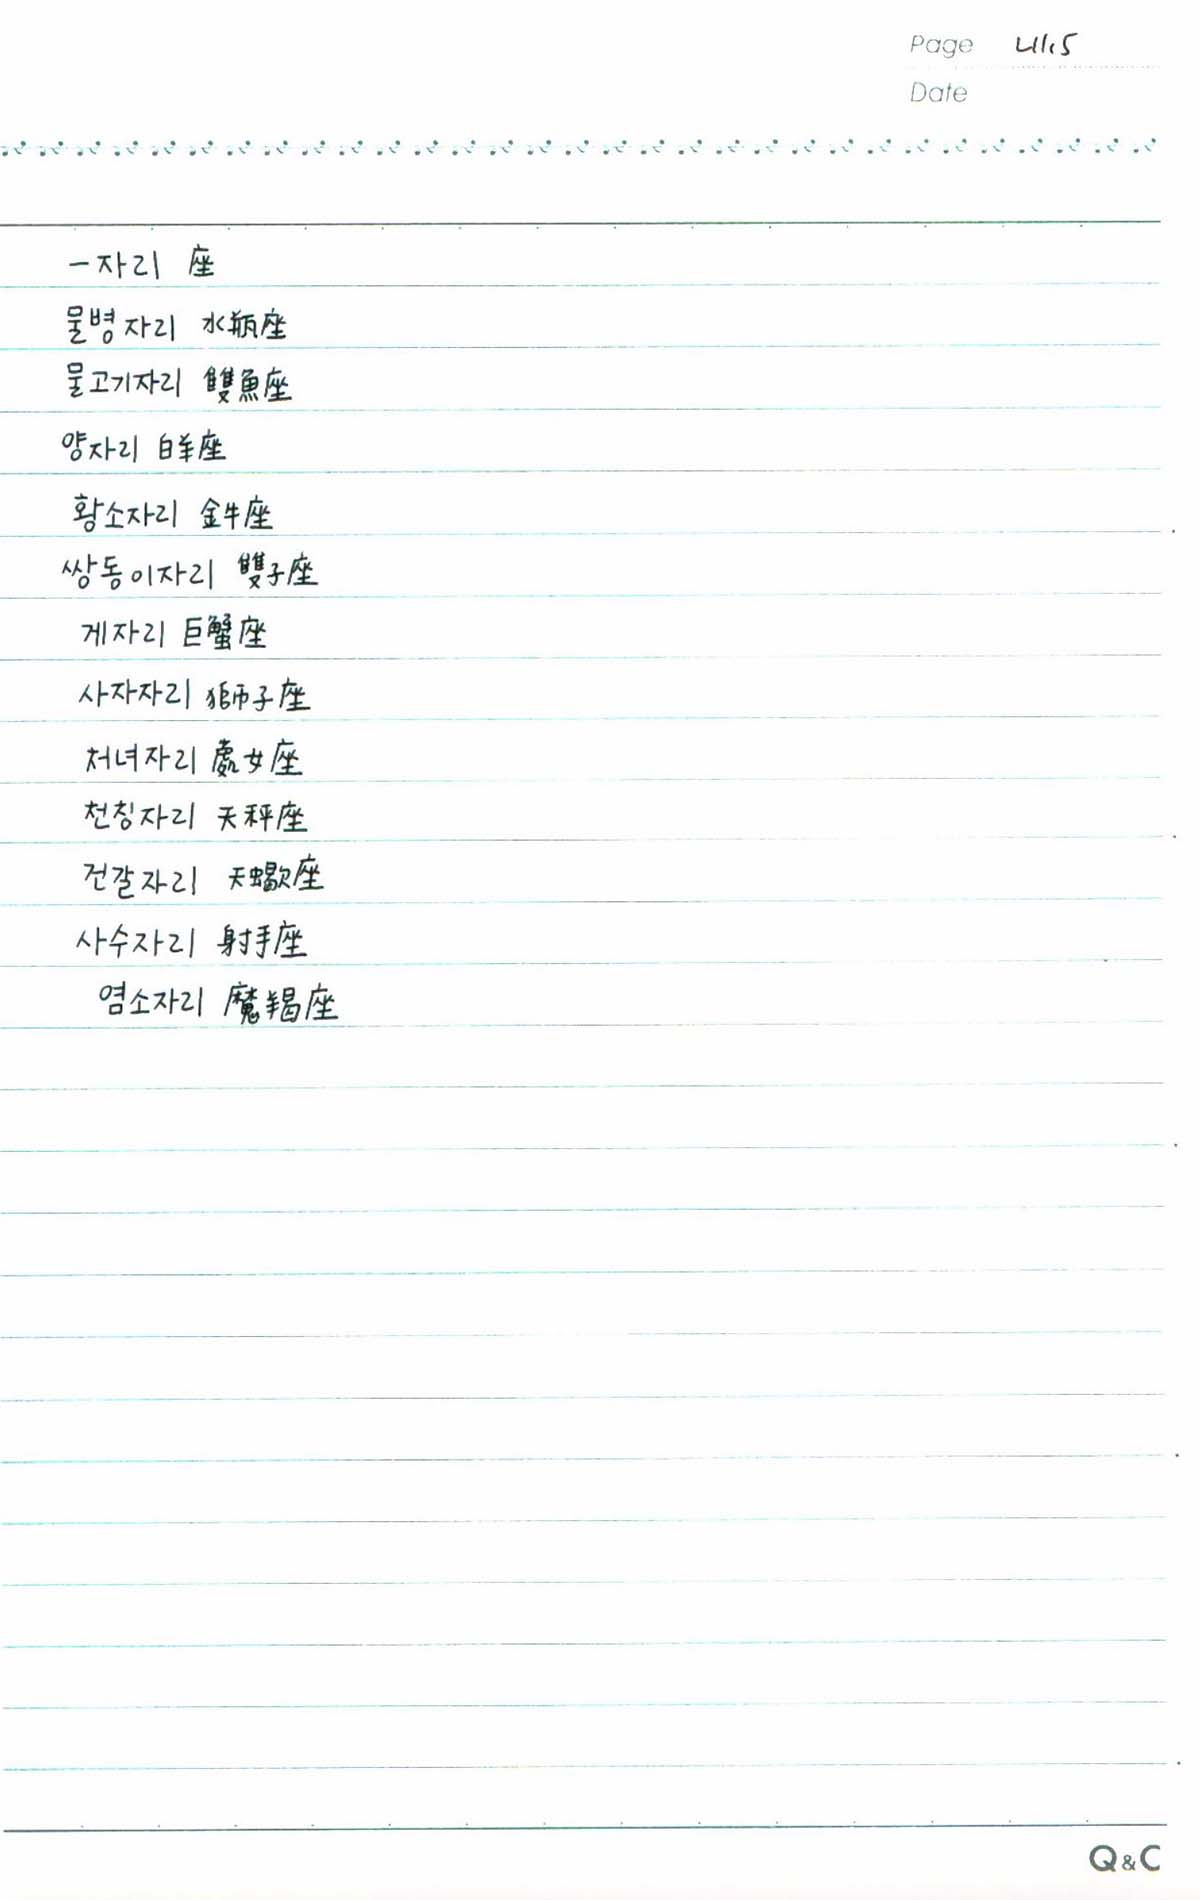 Page 4.5
Date
-자리 座
물병자리 水瓶座
물고기자리 雙魚座
양자리 白羊座
황소자리 金牛座
쌍동이자리 雙子座
게자리 巨蟹座
사자자리 獅子座
처녀자리 處女座
천칭자리 天秤座
전갈자리 天蠍座
사수자리 射手座
염소자리 魔羯座
Q&C